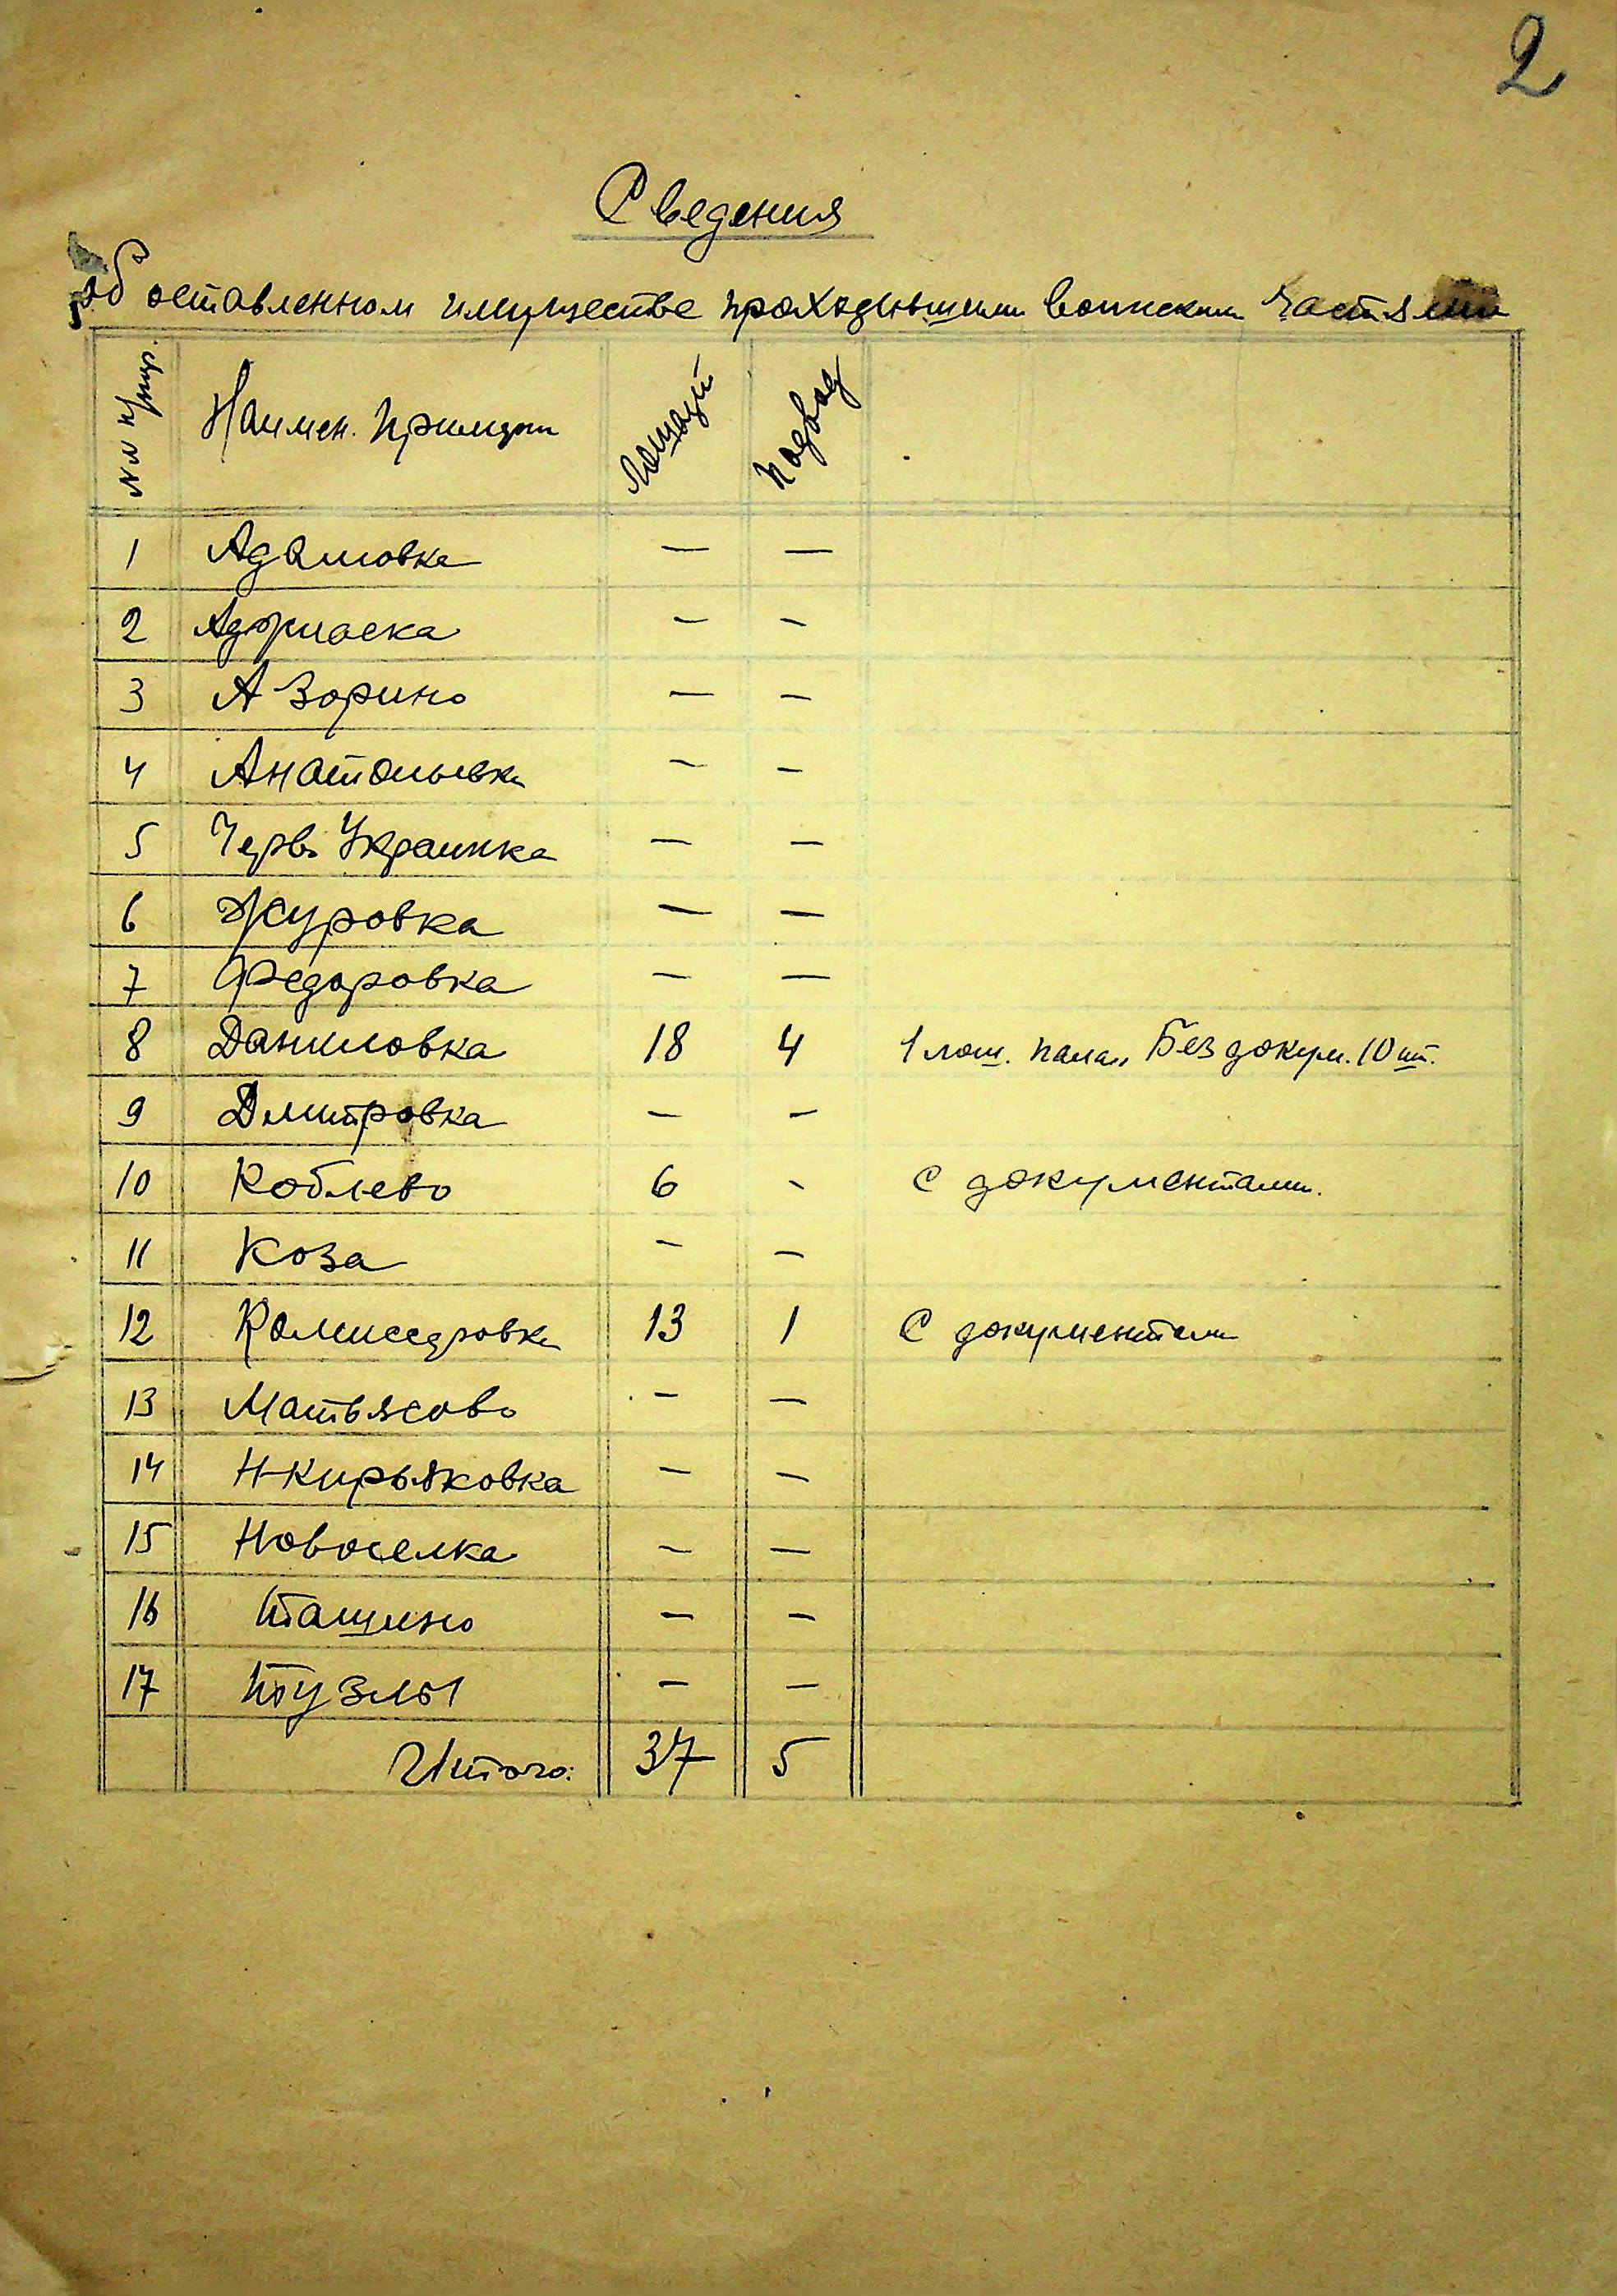 2
Сведения
об оставленном имуществе проходившими воинскими частями
Наимен. Примэри Лошадей Подвод
1 Адамовка — —
2 Аджиаска — —
3 А Зорино — —
4 Анатольевка — —
5 Черв. Украинка — —
6 Журовка — —
7 Федоровка — —
8 Даниловка 18 4 1 лош. пала,, Без докум. 10 шт.
9 Дмитровка — —
10 Коблево 6 - с документами.
11 Коза — —
12 Комиссаровка 13 1 С документами
13 Матьясово — —
14 Н-Кирьяковка — —
15 Новоселка — —
16 Ташино — —
17 Тузлы — —
Итого: 37 5